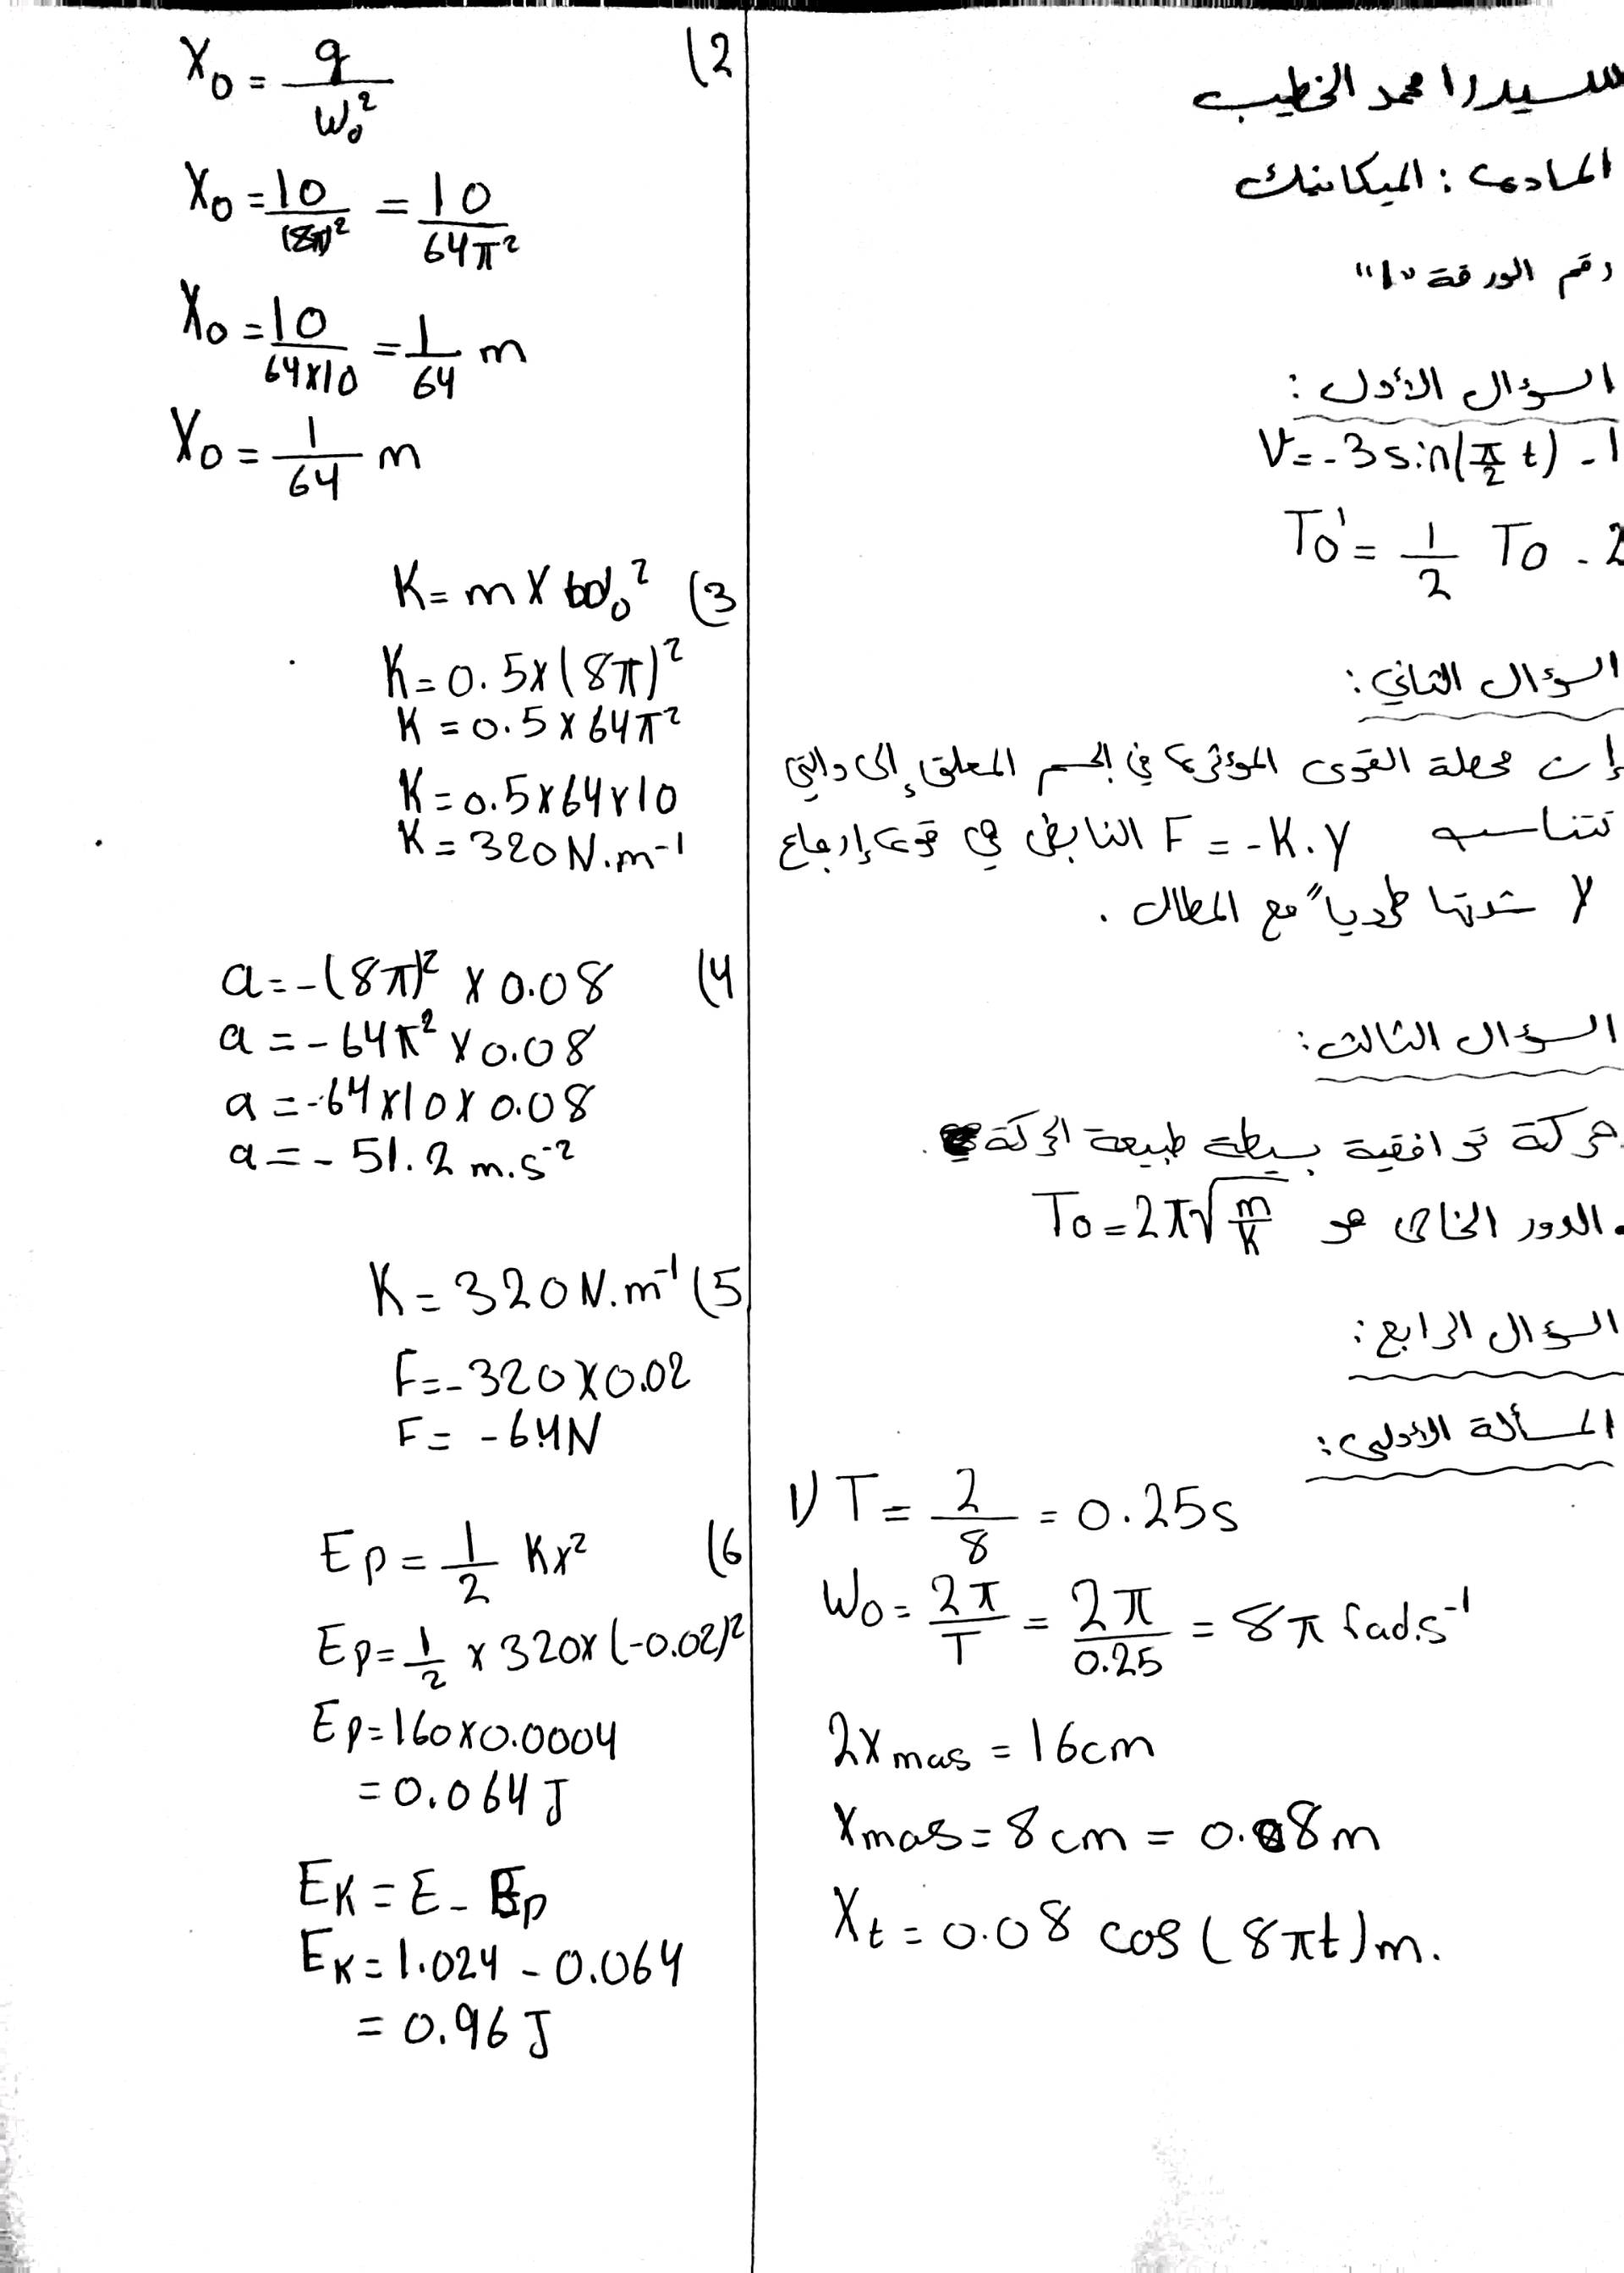 سيدرا محمد الخطيب
المادة : الميكانيك
رقم الورقة "1"
السؤال الأول :
V = -3 sin(π/2 t) -1
T0' = 1/2 T0 -2
السؤال الثاني :
إن محصلة القوى المؤثرة في الجسم المعلق إلى
النابض هي قوة إرجاع F = -K.y تتناسب
شدتها طرديا" مع المطال .
السؤال الثالث :
حركة توافقية بسيطة طبيعة الحركة .
. الدور الخاص هو T0 = 2π√m/K
السؤال الرابع :
المسألة الأولى :
1) T = 2/8 = 0.25s
W0 = 2π/T = 2π/0.25 = 8π rad.s-1
2x mas = 16cm
Xmas = 8cm = 0.08m
Xt = 0.08 cos(8πt)m.
2) X0 = g/W0²
X0 = 10/(8π)² = 10/64π²
X0 = 10/64×10 = 1/64 m
X0 = 1/64 m
3) K = m × ω0²
K = 0.5×(8π)²
K = 0.5×64π²
K = 0.5×64×10
K = 320 N.m-1
4) a = -(8π)² × 0.08
a = -64π² × 0.08
a = -64×10×0.08
a = -51.2 m.s-2
5) K = 320 N.m-1
F = -320×0.02
F = -6.4N
6) Ep = 1/2 Kx²
Ep = 1/2 × 320×(-0.02)²
Ep = 160×0.0004
= 0.064 J
EK = E - Ep
EK = 1.024 - 0.064
= 0.96 J